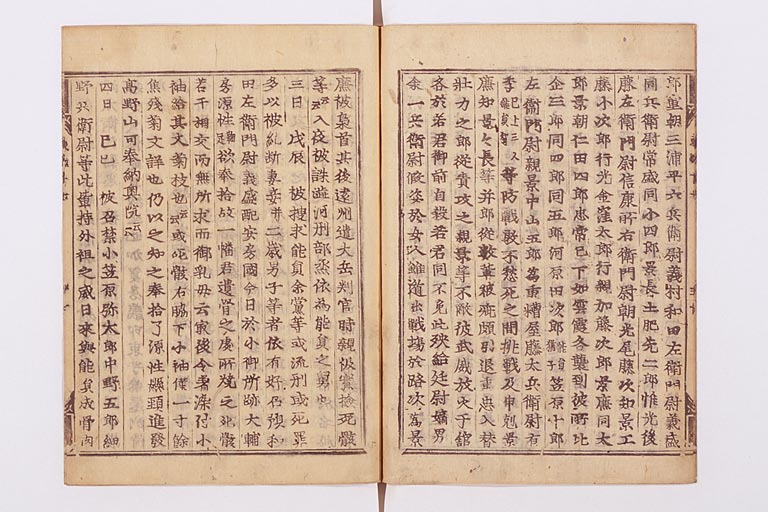 郎重朝三浦平六兵衛尉義村和田左衛門尉義盛
同兵衛尉常盛同小四郎景長土肥先二郎惟光後
藤左衛門尉信康所右衛門尉朝光尾藤次知景工
藤小次郎行光金窪太郎行親加藤次郎景廉同太
郎景朝仁田四郎忠常已下如雲霞各襲到彼所比
企三郎同四郎同五郎河原田次郎能員猶子笠原十郎
左衛門尉親景中山五郎為重糟屋藤太兵衛尉有
季已上三人能員聟等防戦敢不愁死之間挑戦及申剋景
廉知景々長等并郎従数輩被疵頗引退重忠入替
壮力之郎従責攻之親景等不敵彼武威放火于舘
各於若君御前自殺若君同不免此殃給廷尉嫡男
余一兵衛尉假姿於女人雖遁出戦場於路次為景
廉被梟首其後遠州遣大岳判官時親被實撿死骸
等云々入夜被誅澁河刑部烝依為能員之舅也
三日戊辰 被捜求能員余黨等或流刑或死罪
多以被糺断妻妾并二歳男子等者依有好仍預和
田左衛門尉義盛配安房國今日於小御所跡大輔
房源性欲奉拾故一幡君遺骨之處所焼之死骸
若干相交而無所求而御乳母云最後令著染付小
袖給其文菊枝也云々或死骸右脇下小袖僅一寸餘
焦残菊文詳也仍以之知之奉拾了源性懸頚進發
高野山可奉納奥院云々
四日己巳 被召禁小笠原弥太郎中野五郎細
野兵衛尉等此輩恃外祖之威日来與能員成骨肉